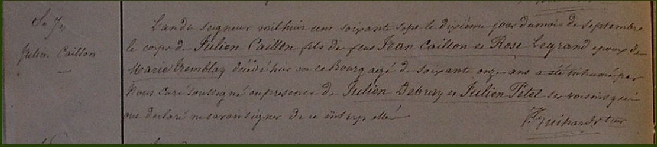 S. 7.
Julien Caillon
L'an du Seigneur mil huit cent soixante sept le dixième jour du mois de septembre
le corps de Julien Caillon fils de feus Jean Caillon et Rose Legrand époux de
Marie Tremblay décédé hier en ce Bourg agé de soixante onze ans a été inhumé par
Nous Curé soussigné en présence de Julien et Julien ses voisins qui
ont déclaré ne savoir signer de ce interpellés